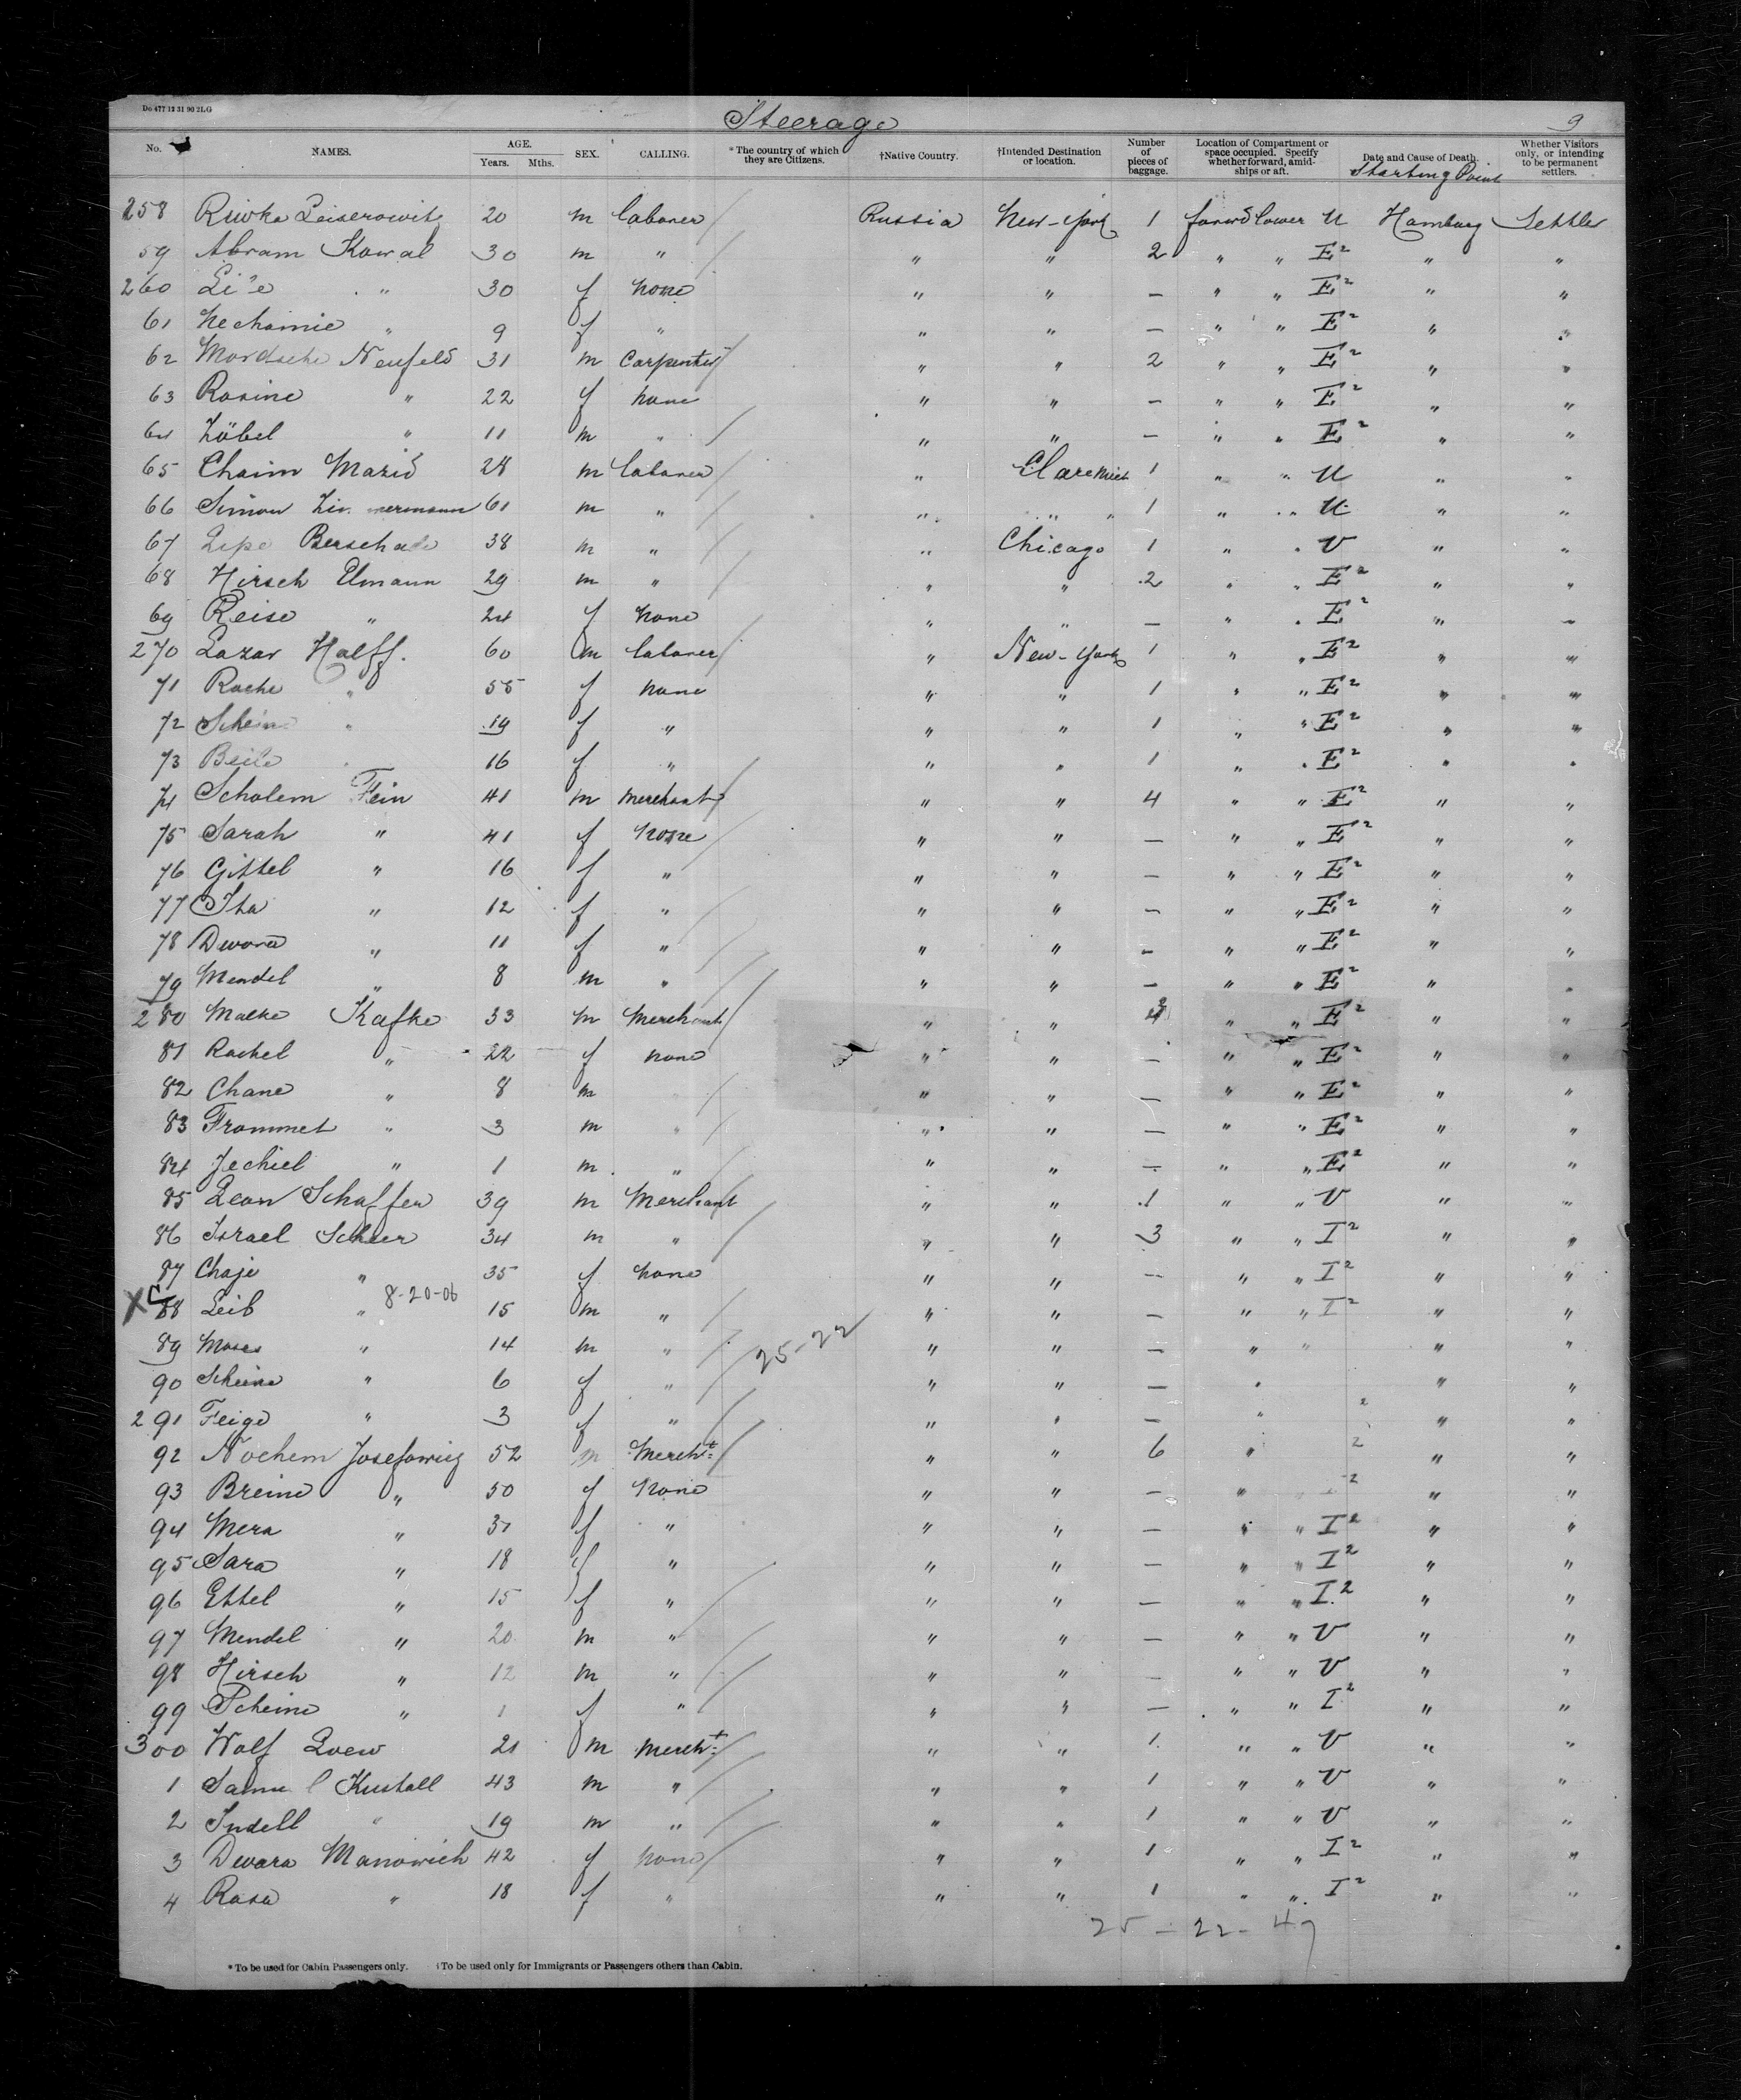 Do 477 12 31 90 2LG
Steerage 9
No. NAMES. AGE. Years. Mths. SEX. CALLING. *The country of which they are Citizens. †Native Country. †Intended Destination or location. Number of pieces of baggage. Location of Compartment or space occupied. Specify whether forward, amidships or aft. Date and Cause of Death. Starting Point Whether Visitors only, or intending to be permanent settlers.
258 Riwka Leiserowitz 20 m laborer Russia New-York 1 forwd lower U Hamburg Settler
59 Abram Kowal 30 m " " " 2 " " E2 " "
260 " 30 f none " " — " " E2 " "
61 Nechamie " 9 f " " " — " " E2 " "
62 Mordsche Neufeld 31 m Carpenter " " 2 " " E2 " "
63 Rosine " 22 f none " " — " " E2 " "
64 Zöbel " 11 m " " " — " " E2 " "
65 Chaim Mazid 28 m laborer " Clare Mich 1 " " U " "
66 Simon 61 m " " " " 1 " " U " "
67 Lipe Berschade 38 m " " Chicago 1 " " V " "
68 Hirsch Elmann 29 m " " " 2 " " E2 " "
69 Reise " 24 f none " " — " " E2 " "
270 Lazar Halff. 60 m laborer " New-York 1 " " E2 " "
71 Roche " 55 f none " " 1 " " E2 " "
72 Schein " 19 f " " " 1 " " E2 " "
73 Beile " 16 f " " " 1 " " E2 " "
74 Scholem Fein 41 m merchant " " 4 " " E2 " "
75 Sarah " 41 f none " " — " " E2 " "
76 Gittel " 16 f " " " — " " E2 " "
77 Ita " 12 f " " " — " " E2 " "
78 Dwora " 11 f " " " — " " E2 " "
79 Mendel " 8 m " " " — " " E2 " "
280 Malke Kafke 33 m Merchant " " " " E2 " "
81 Rachel " 22 f none " " — " " E2 " "
82 Chane " 8 m " " — " " E2 " "
83 Frommet " 3 m " " " — " " E2 " "
84 Jechiel " 1 m " " " — " " E2 " "
85 Leon Schaffer 39 m Merchant " " 1 " " V " "
86 Israel Scheer 34 m " " " 3 " " I2 " "
87 Chaje " 35 f none " " — " " I2 " "
XC 88 Leib " 8-20-06 15 m " " " — " " I2 " "
89 Moses " 14 m " 25-22 " " — " " " "
90 Scheine " 6 f " " " — " " "
291 Feige " 3 f " " " — " 2 " "
92 Nochem Josefowicz 52 m Mercht " " 6 " 2 " "
93 Breine " 50 f none " " — " " I2 " "
94 Mera " 31 f " " " — " " I2 " "
95 Sara " 18 f " " " — " " I2 " "
96 Ettel " 15 f " " " — " " I2 " "
97 Mendel " 20 m " " " — " " V " "
98 Hirsch " 12 m " " " — " " V " "
99 Scheine " 1 f " " " — " " I2 " "
300 Wolf Loew 21 m mercht " " 1 " " V " "
1 Samuel Kustall 43 m " " " 1 " " V " "
2 Judell " 19 m " " " 1 " " V " "
3 Dwora Manowich 42 f none " " 1 " " I2 " "
4 Rasa " 18 f " " " 1 " " I2 " "
25 - 22 - 47
*To be used for Cabin Passengers only. †To be used only for Immigrants or Passengers others than Cabin.